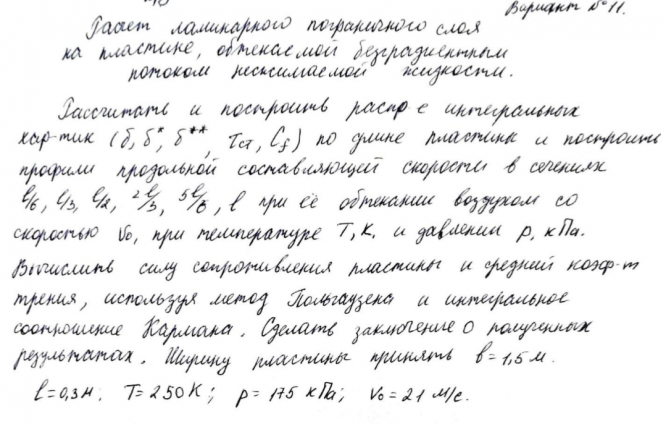 Вариант № 11.
Расчет ламинарного пограничного слоя
на пластине, обтекаемой безградиентным
потоком несжимаемой жидкости.
Рассчитать и построить распр-е интегральных
хар-тик (δ, δ*, δ**, τст, Cf) по длине пластины и построить
профили продольной составляющей скорости в сечениях
l/6, l/3, l/2, 2l/3, 5l/6, l при её обтекании воздухом со
скоростью v₀, при температуре T, K, и давлении p, кПа.
Вычислить силу сопротивления пластины и средний коэф-т
трения, используя метод Польгаузена и интегральное
соотношение Кармана. Сделать заключение о полученных
результатах. Ширину пластины принять b = 1,5 м.
l = 0,3 м; T = 250 K; p = 175 кПа; v₀ = 21 м/с.